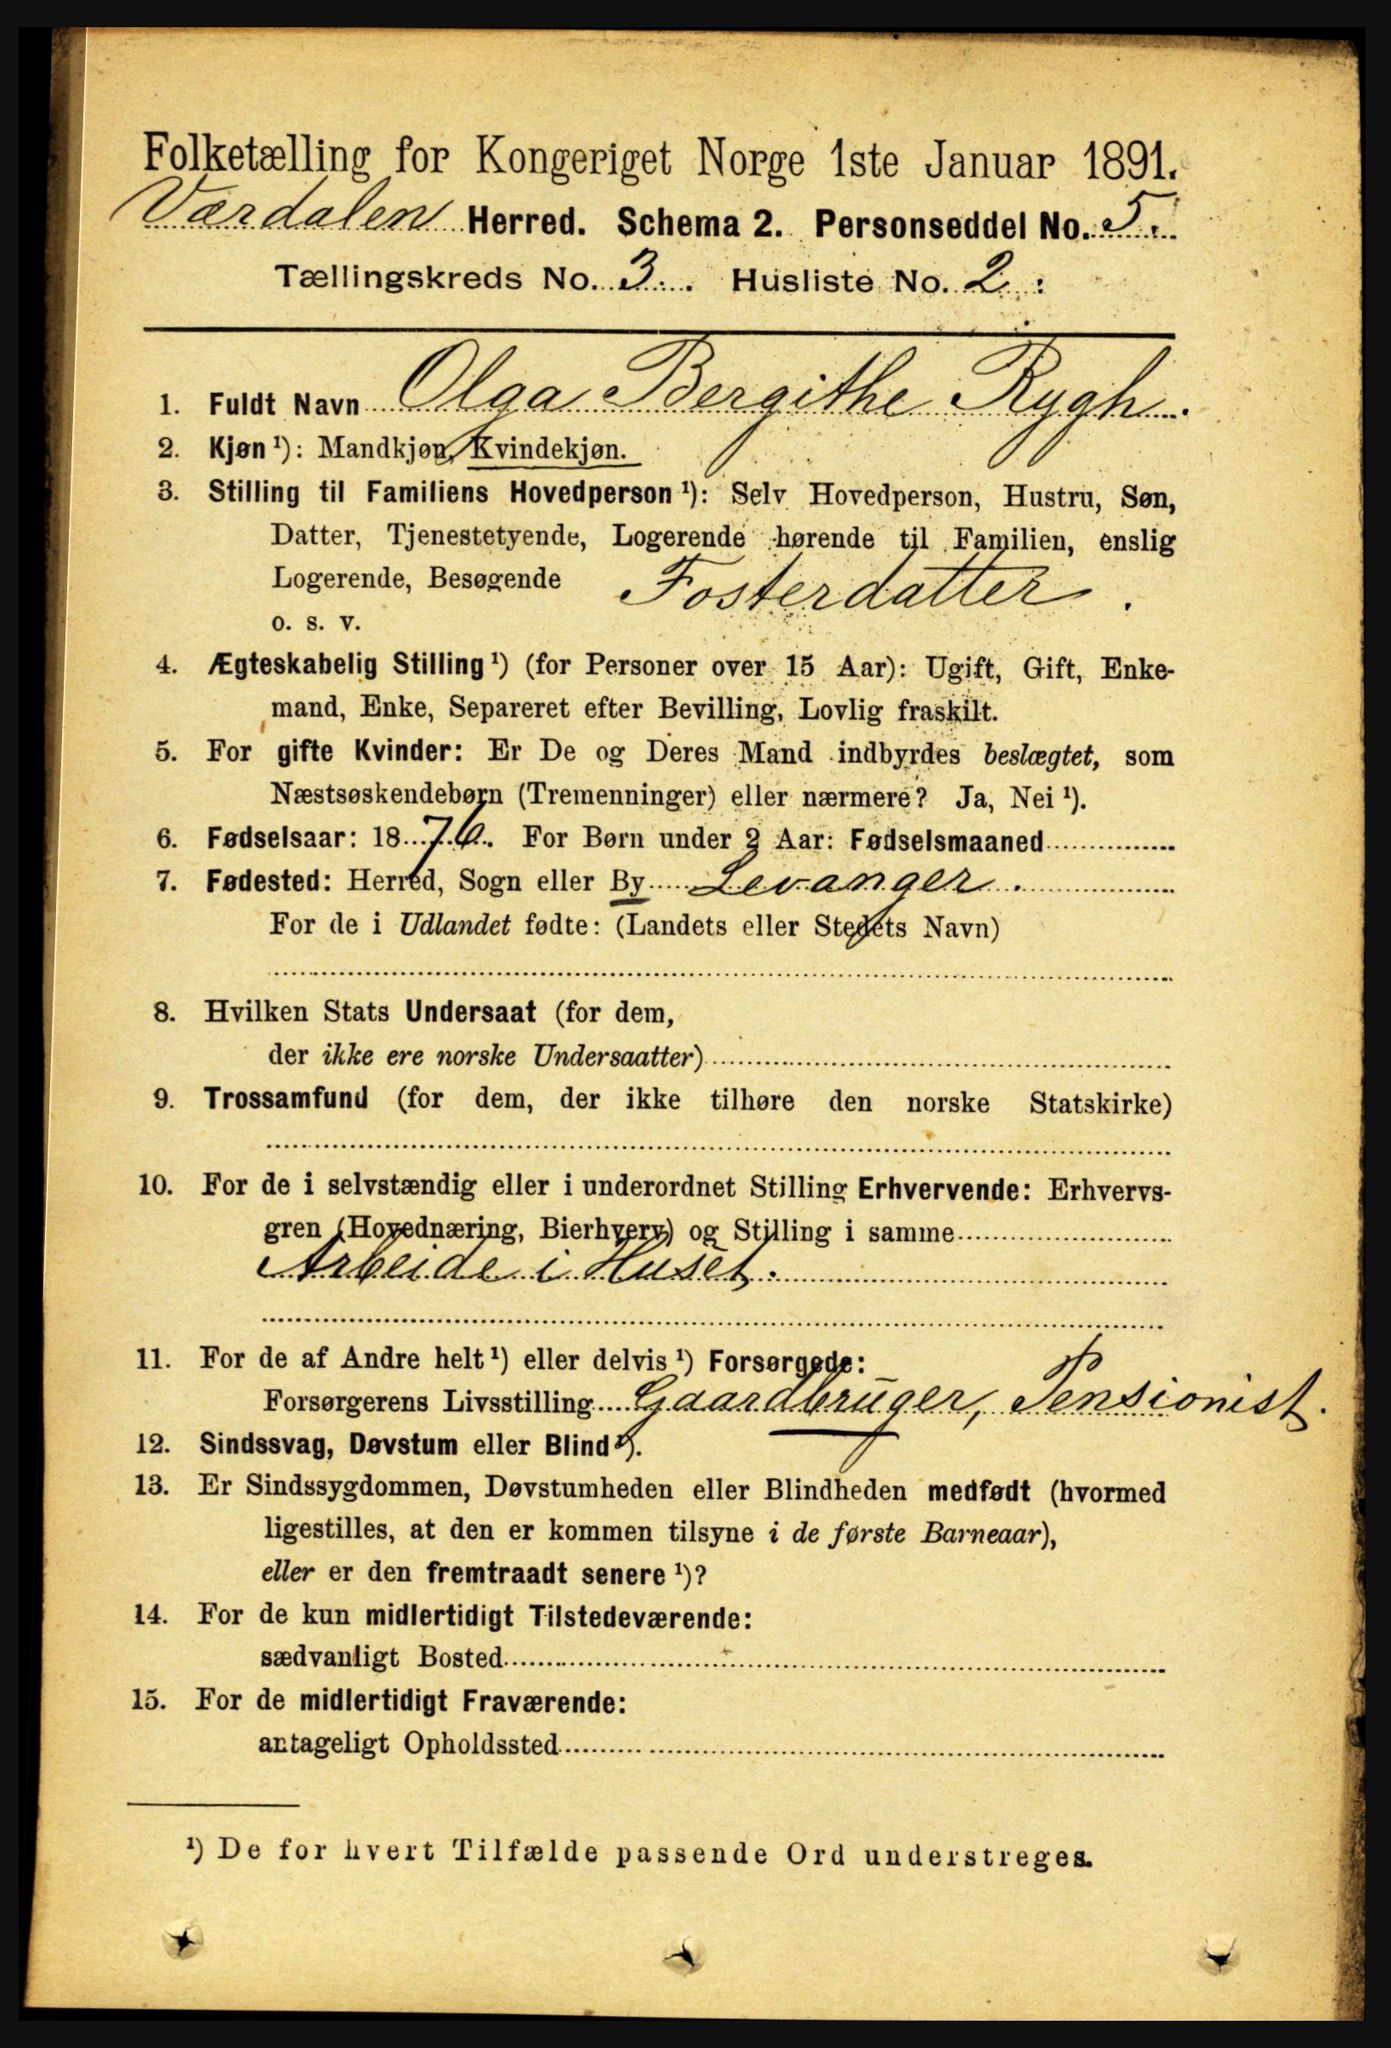 Folketælling for Kongeriget Norge 1ste Januar 1891.
Værdalen Herred. Schema 2. Personseddel No. 5.
Tællingskreds No. 3. Husliste No. 2.
1. Fuldt Navn Olga Bergithe Rygh.
2. Kjøn ¹): Mandkjøn, Kvindekjøn.
3. Stilling til Familiens Hovedperson ¹): Selv Hovedperson, Hustru, Søn,
Datter, Tjenestetyende, Logerende hørende til Familien, enslig
Logerende, Besøgende Fosterdatter.
o. s. v.
4. Ægteskabelig Stilling ¹) (for Personer over 15 Aar): Ugift, Gift, Enke-
mand, Enke, Separeret efter Bevilling, Lovlig fraskilt.
5. For gifte Kvinder: Er De og Deres Mand indbyrdes beslægtet, som
Næstsøskendebørn (Tremenninger) eller nærmere? Ja, Nei ¹).
6. Fødselsaar: 1876. For Børn under 2 Aar: Fødselsmaaned
7. Fødested: Herred, Sogn eller By Levanger.
For de i Udlandet fødte: (Landets eller Stedets Navn)
8. Hvilken Stats Undersaat (for dem,
der ikke ere norske Undersaatter)
9. Trossamfund (for dem, der ikke tilhøre den norske Statskirke)
10. For de i selvstændig eller i underordnet Stilling Erhvervende: Erhvervs-
gren (Hovednæring, Bierhverv) og Stilling i samme
Arbeide i Huset.
11. For de af Andre helt ¹) eller delvis ¹) Forsørgede:
Forsørgerens Livsstilling Gaardbruger, Pensionist.
12. Sindssvag, Døvstum eller Blind ¹).
13. Er Sindssygdommen, Døvstumheden eller Blindheden medfødt (hvormed
ligestilles, at den er kommen tilsyne i de første Barneaar),
eller er den fremtraadt senere ¹)?
14. For de kun midlertidigt Tilstedeværende:
sædvanligt Bosted
15. For de midlertidigt Fraværende:
antageligt Opholdssted
¹) De for hvert Tilfælde passende Ord understreges.